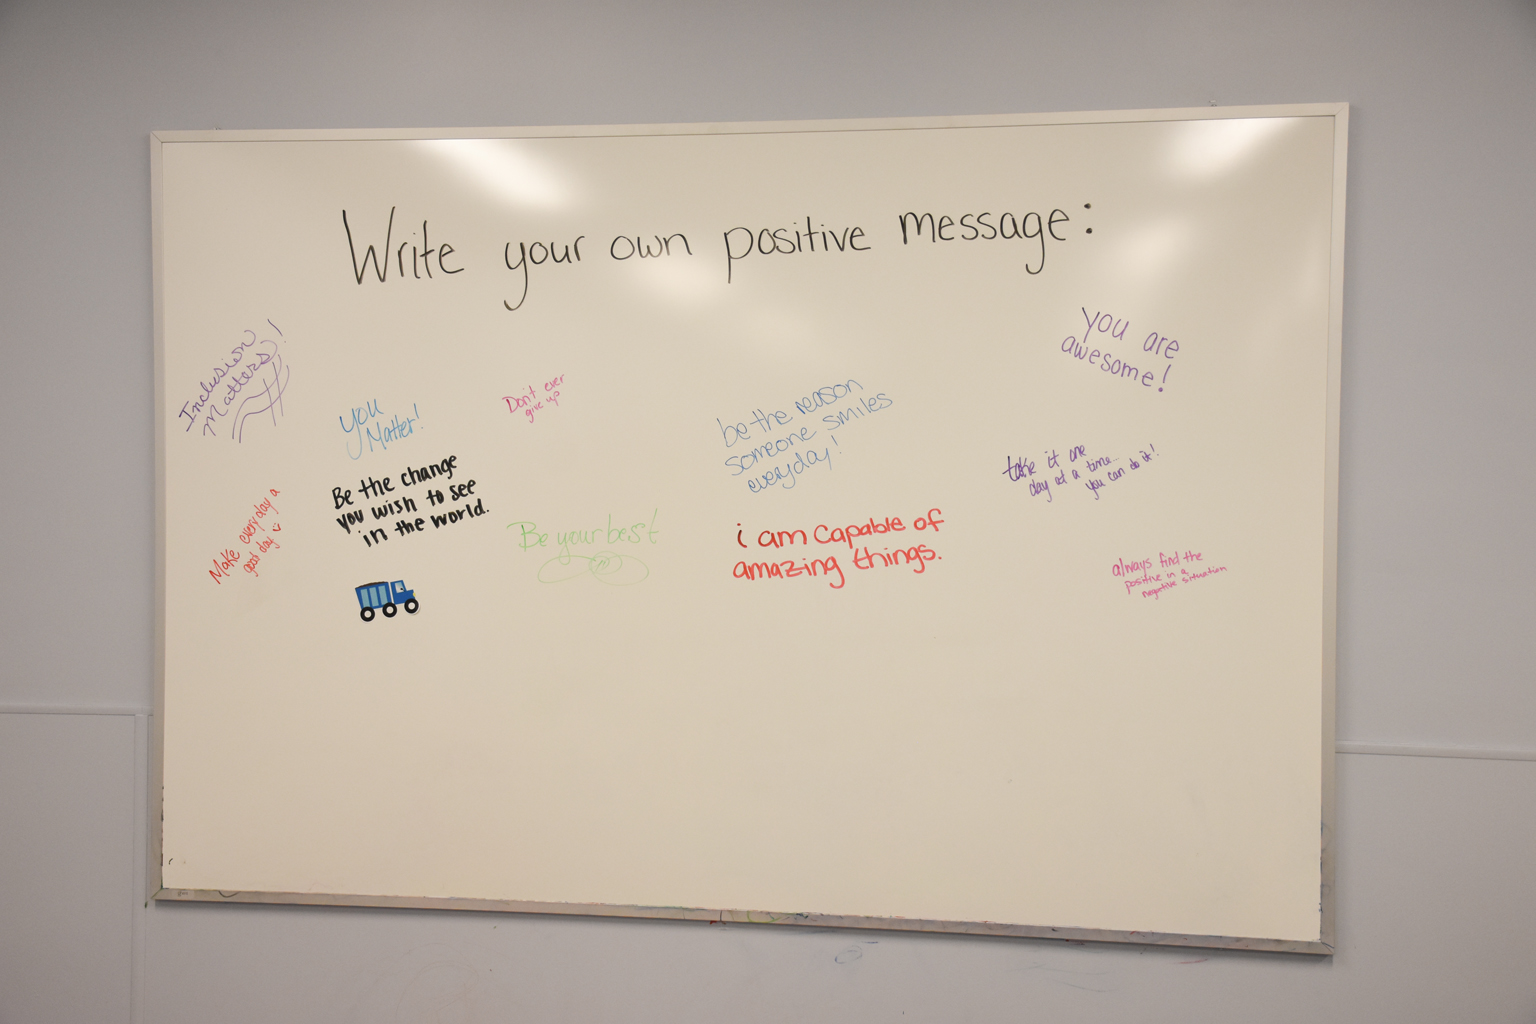 Write your own positive message:
Inclusion
Matters!
you
Matter!
Don't ever
give up
be the reason
someone smiles
everyday!
you are
awesome!
Be the change
you wish to see
in the world.
take it one
day at a time
you can do it!
Make everyday a
good day
Be your best
i am capable of
amazing things.
always find the
positive in a
negative situation